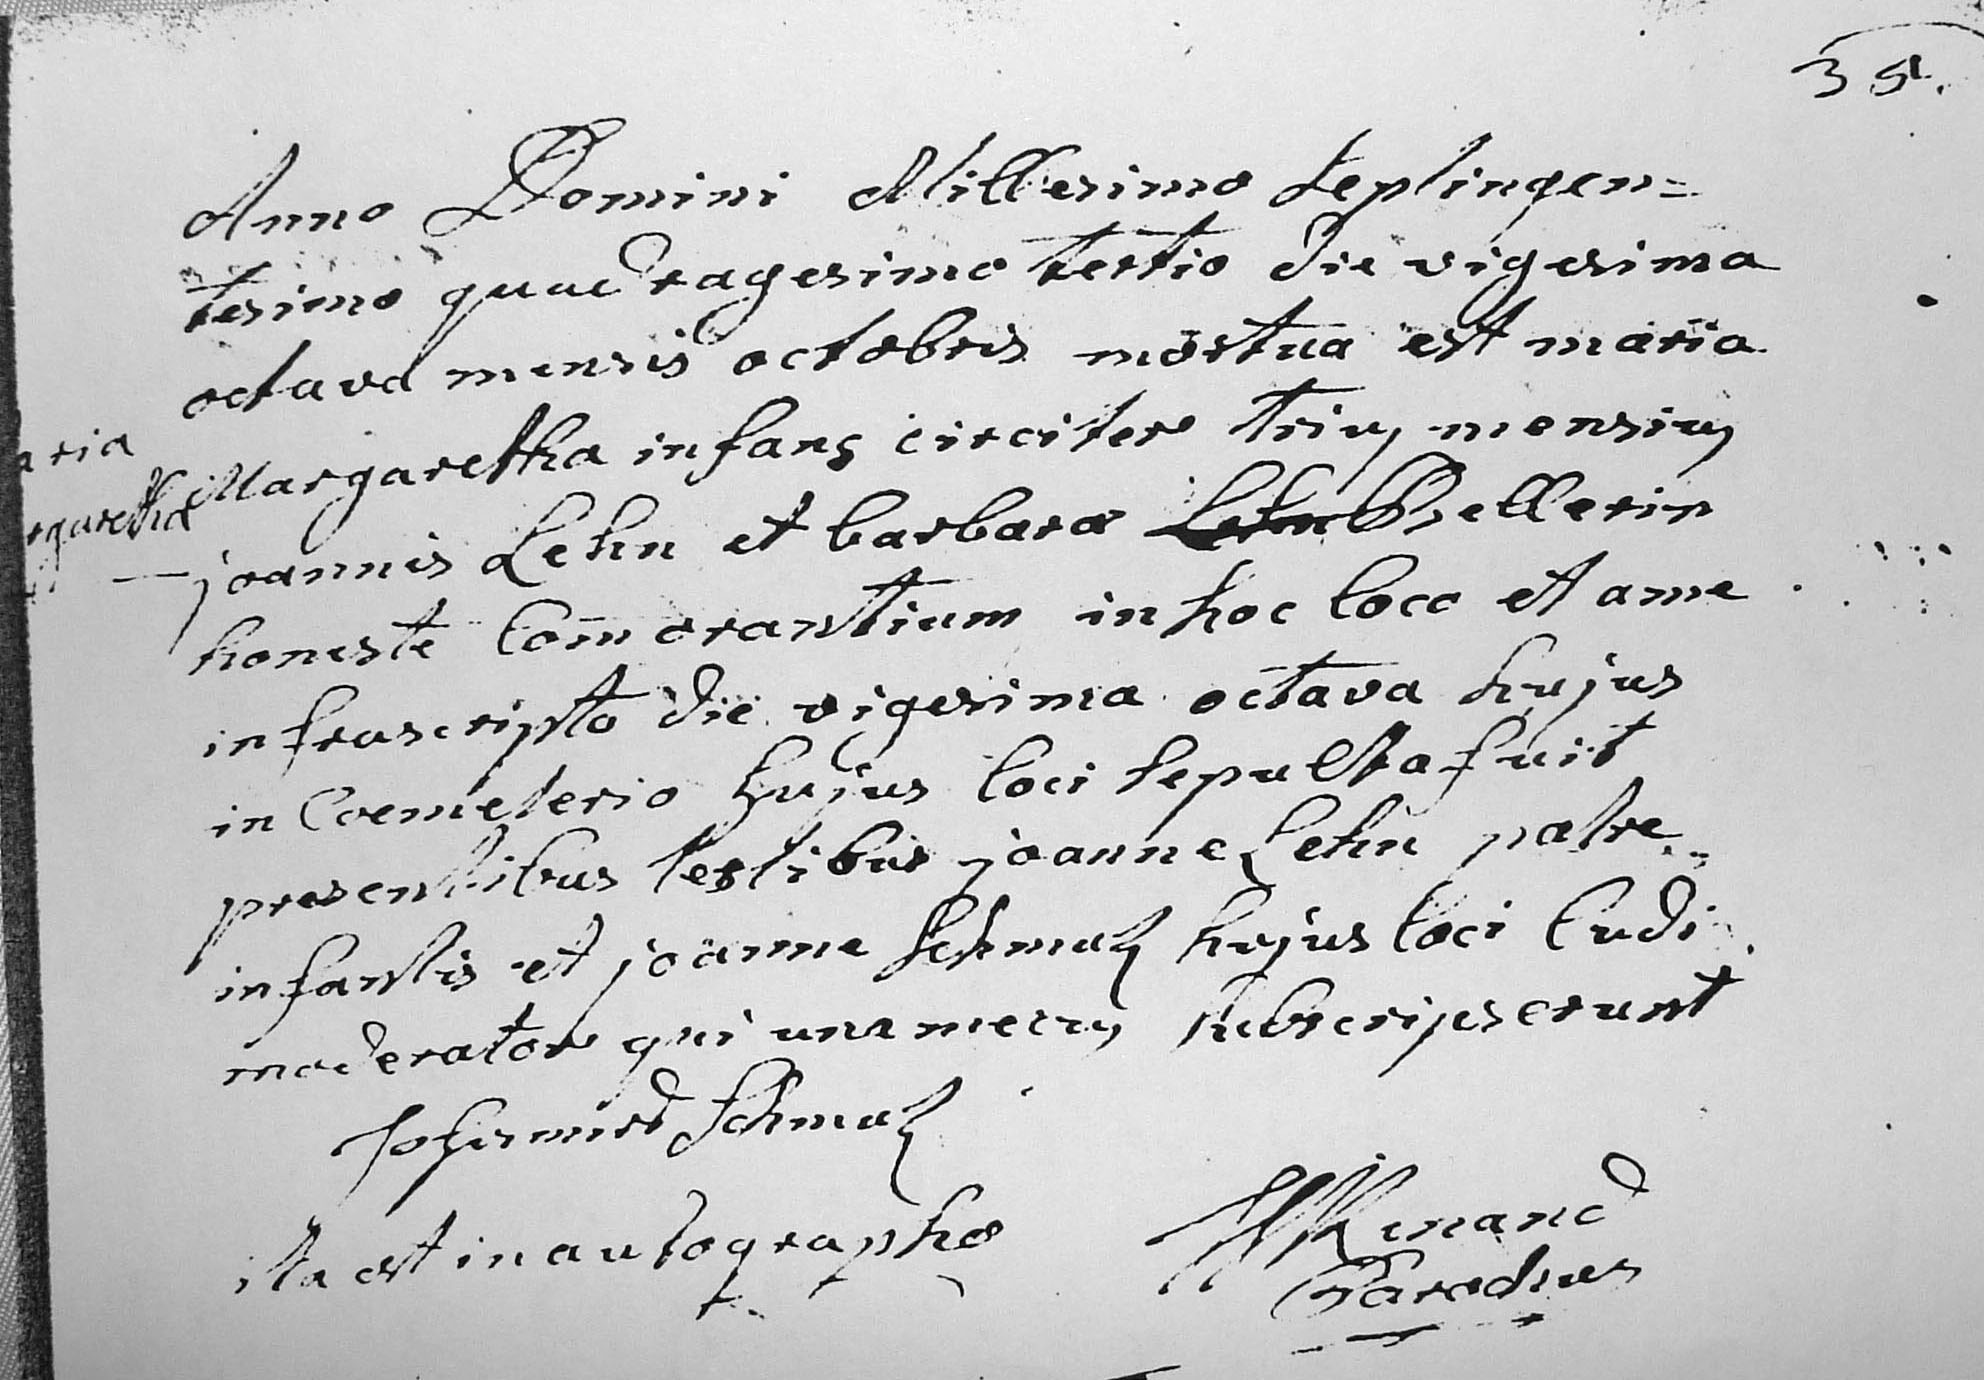 35.
Anno Domini Millesimo Septingen=
tesimo quadragesimo tertio die vigesima
octava mensis octobris mortua est maria
aria
Margaretha infans circiter trium mensium
rgaretha
joannis Lehn et barbaræ Lehn Bellerin
honeste Com̄orantium in hoc loco et a me
infrascripto die vigesima octava hujus
in Coemeterio hujus loci sepulta fuit
presentibus testibus joanne Lehn patre
infantis et joanne Schmaltz hujus loci ludi
moderatore qui una mecum subscripserunt
Johannes
ita est in autographo
Parochus